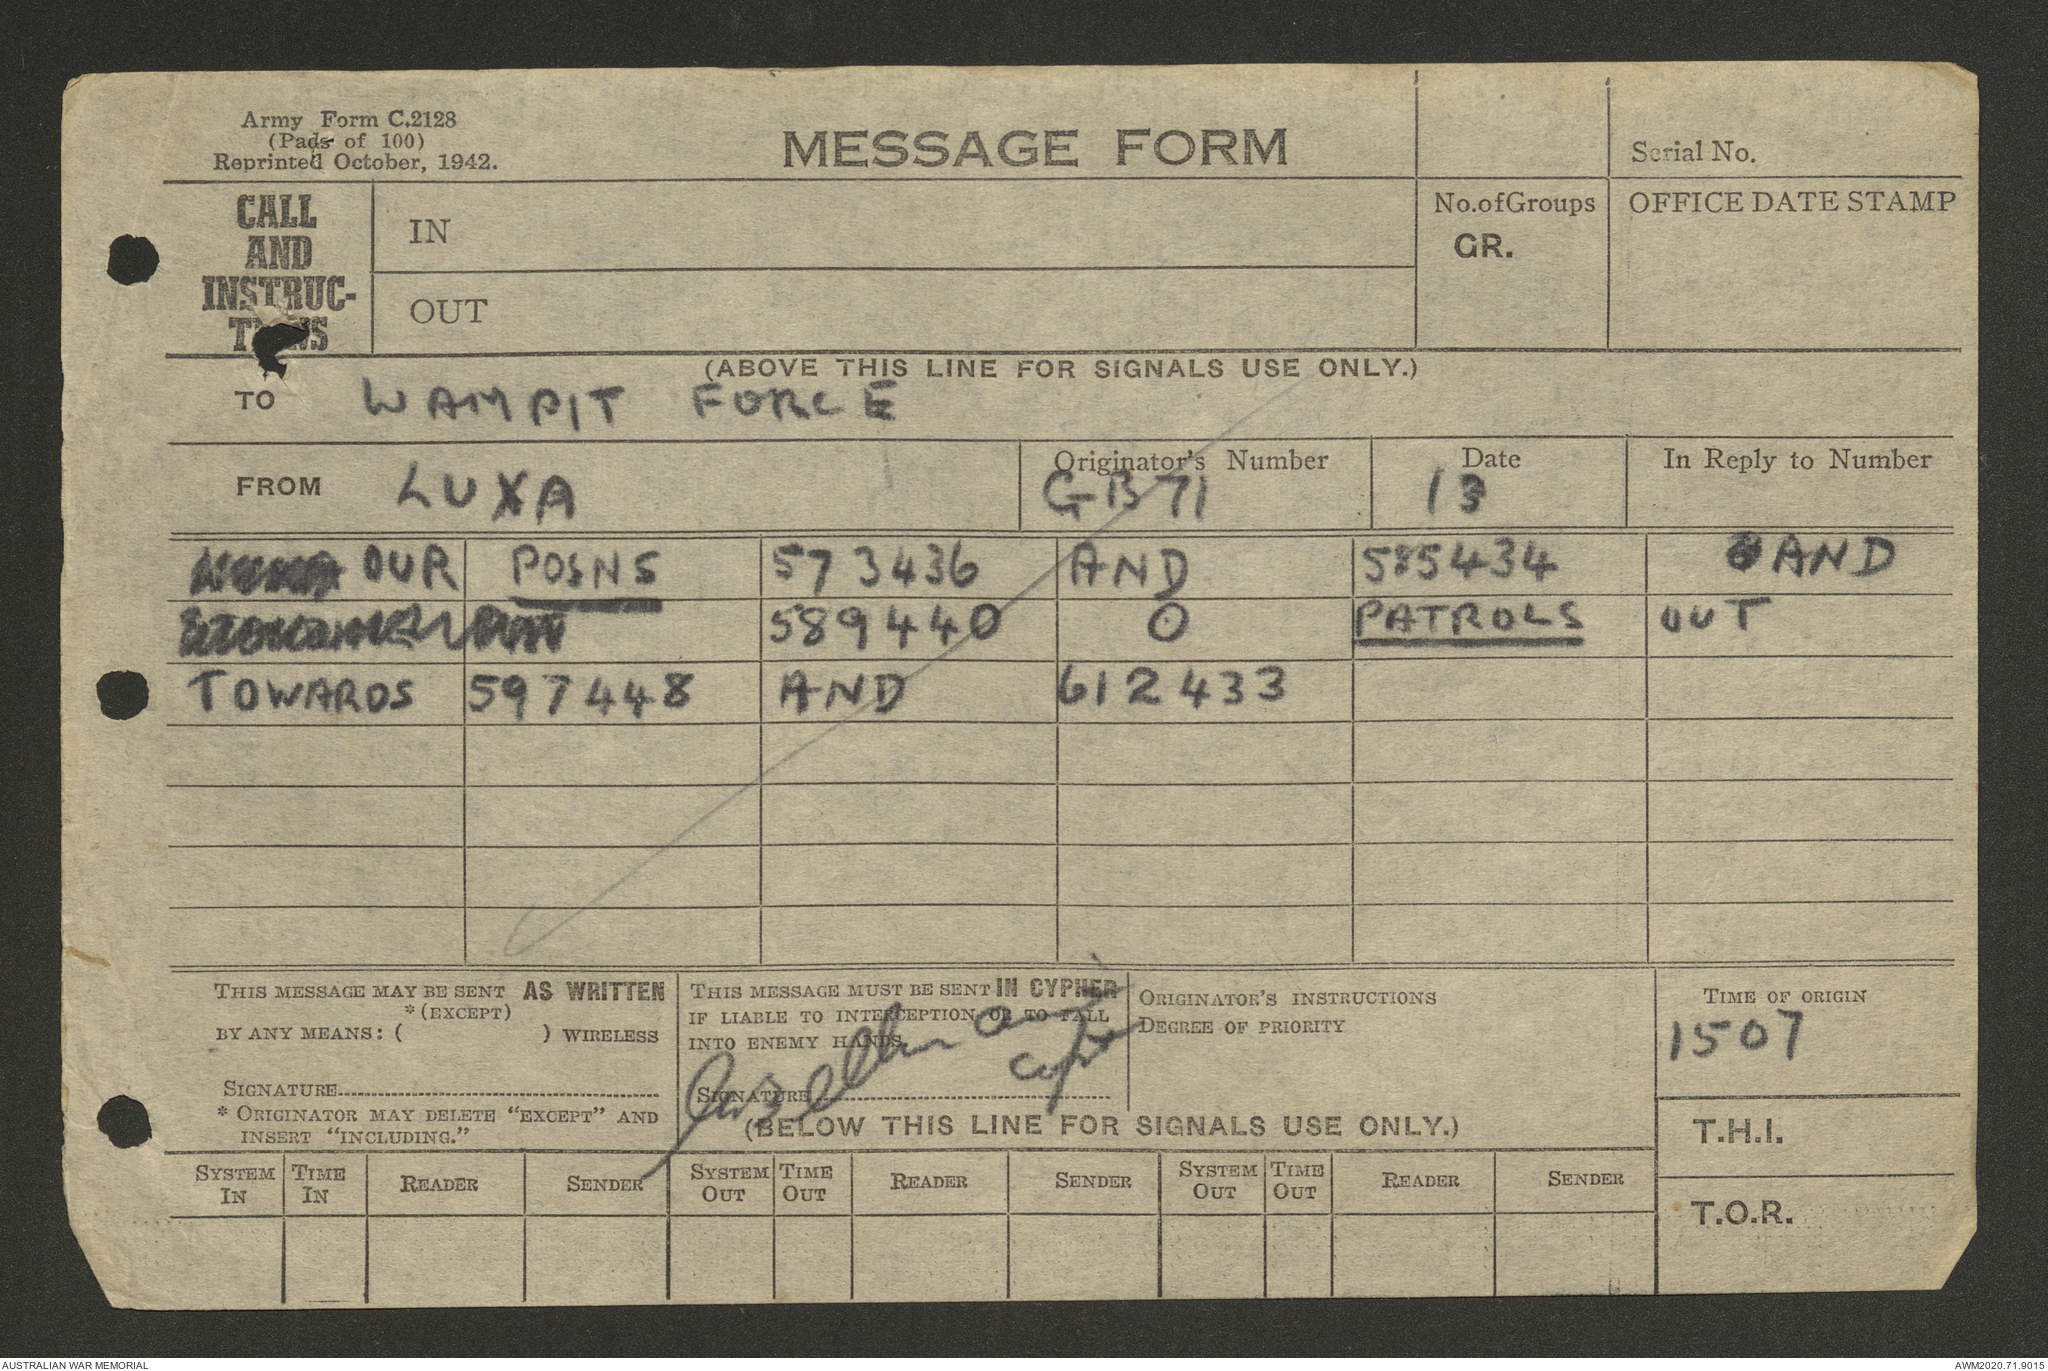 Army Form C.2128
(Pads of 100)
Reprinted October, 1942.
MESSAGE FORM
Serial No.
CALL
AND
INSTRUC-
TIONS
IN
OUT
No. of Groups
GR.
OFFICE DATE STAMP
(ABOVE THIS LINE FOR SIGNALS USE ONLY.)
TO WAMPIT FORCE
FROM LUXA
Originator's Number
GB71
Date
13
In Reply to Number
OUR POSNS 573436 AND 585434 AND
589440 O PATROLS OUT
TOWARDS 597448 AND 612433
THIS MESSAGE MAY BE SENT AS WRITTEN
*(EXCEPT)
BY ANY MEANS: ( ) WIRELESS
SIGNATURE
* ORIGINATOR MAY DELETE "EXCEPT" AND
INSERT "INCLUDING."
THIS MESSAGE MUST BE SENT IN CYPHER
IF LIABLE TO INTERCEPTION OR TO FALL
INTO ENEMY HANDS.
SIGNATURE
Capt
ORIGINATOR'S INSTRUCTIONS
DEGREE OF PRIORITY
TIME OF ORIGIN
1507
T.H.I.
T.O.R.
(BELOW THIS LINE FOR SIGNALS USE ONLY.)
SYSTEM IN TIME IN READER SENDER SYSTEM OUT TIME OUT READER SENDER SYSTEM OUT TIME OUT READER SENDER
AUSTRALIAN WAR MEMORIAL
AWM2020.71.9015